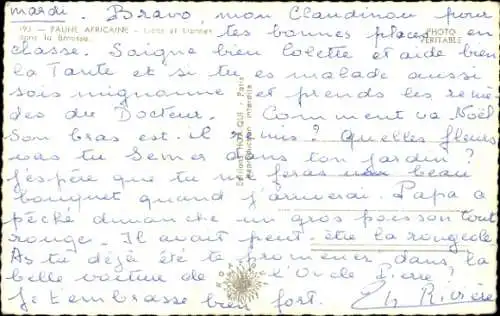 mardi. Bravo mon Clandinou pour
193 - FAUNE AFRICAINE - Lions et Lionnes
dans la Brousse.
PHOTO
VÉRITABLE
tes bonnes places en
classe. Soigne bien Colette et aide bien
la Tante et si tu es malade aussi
sois mignonne et prends les remè
des du Docteur. Comment va Noël
Son bras est-il remis? Quelles fleurs
vas tu Semer dans ton jardin?
J'espère que tu me feras un beau
bouquet quand j'arriverai. Papa a
pêché dimanche un gros poisson tout
rouge. Il avait peut-être la rougeole
As tu déjà été te promener dans la
belle voiture de l'Oncle Pierre?
Je t'embrasse bien fort. Ch Rivière
Edition HOA-QUI - Paris
Reproduction interdite